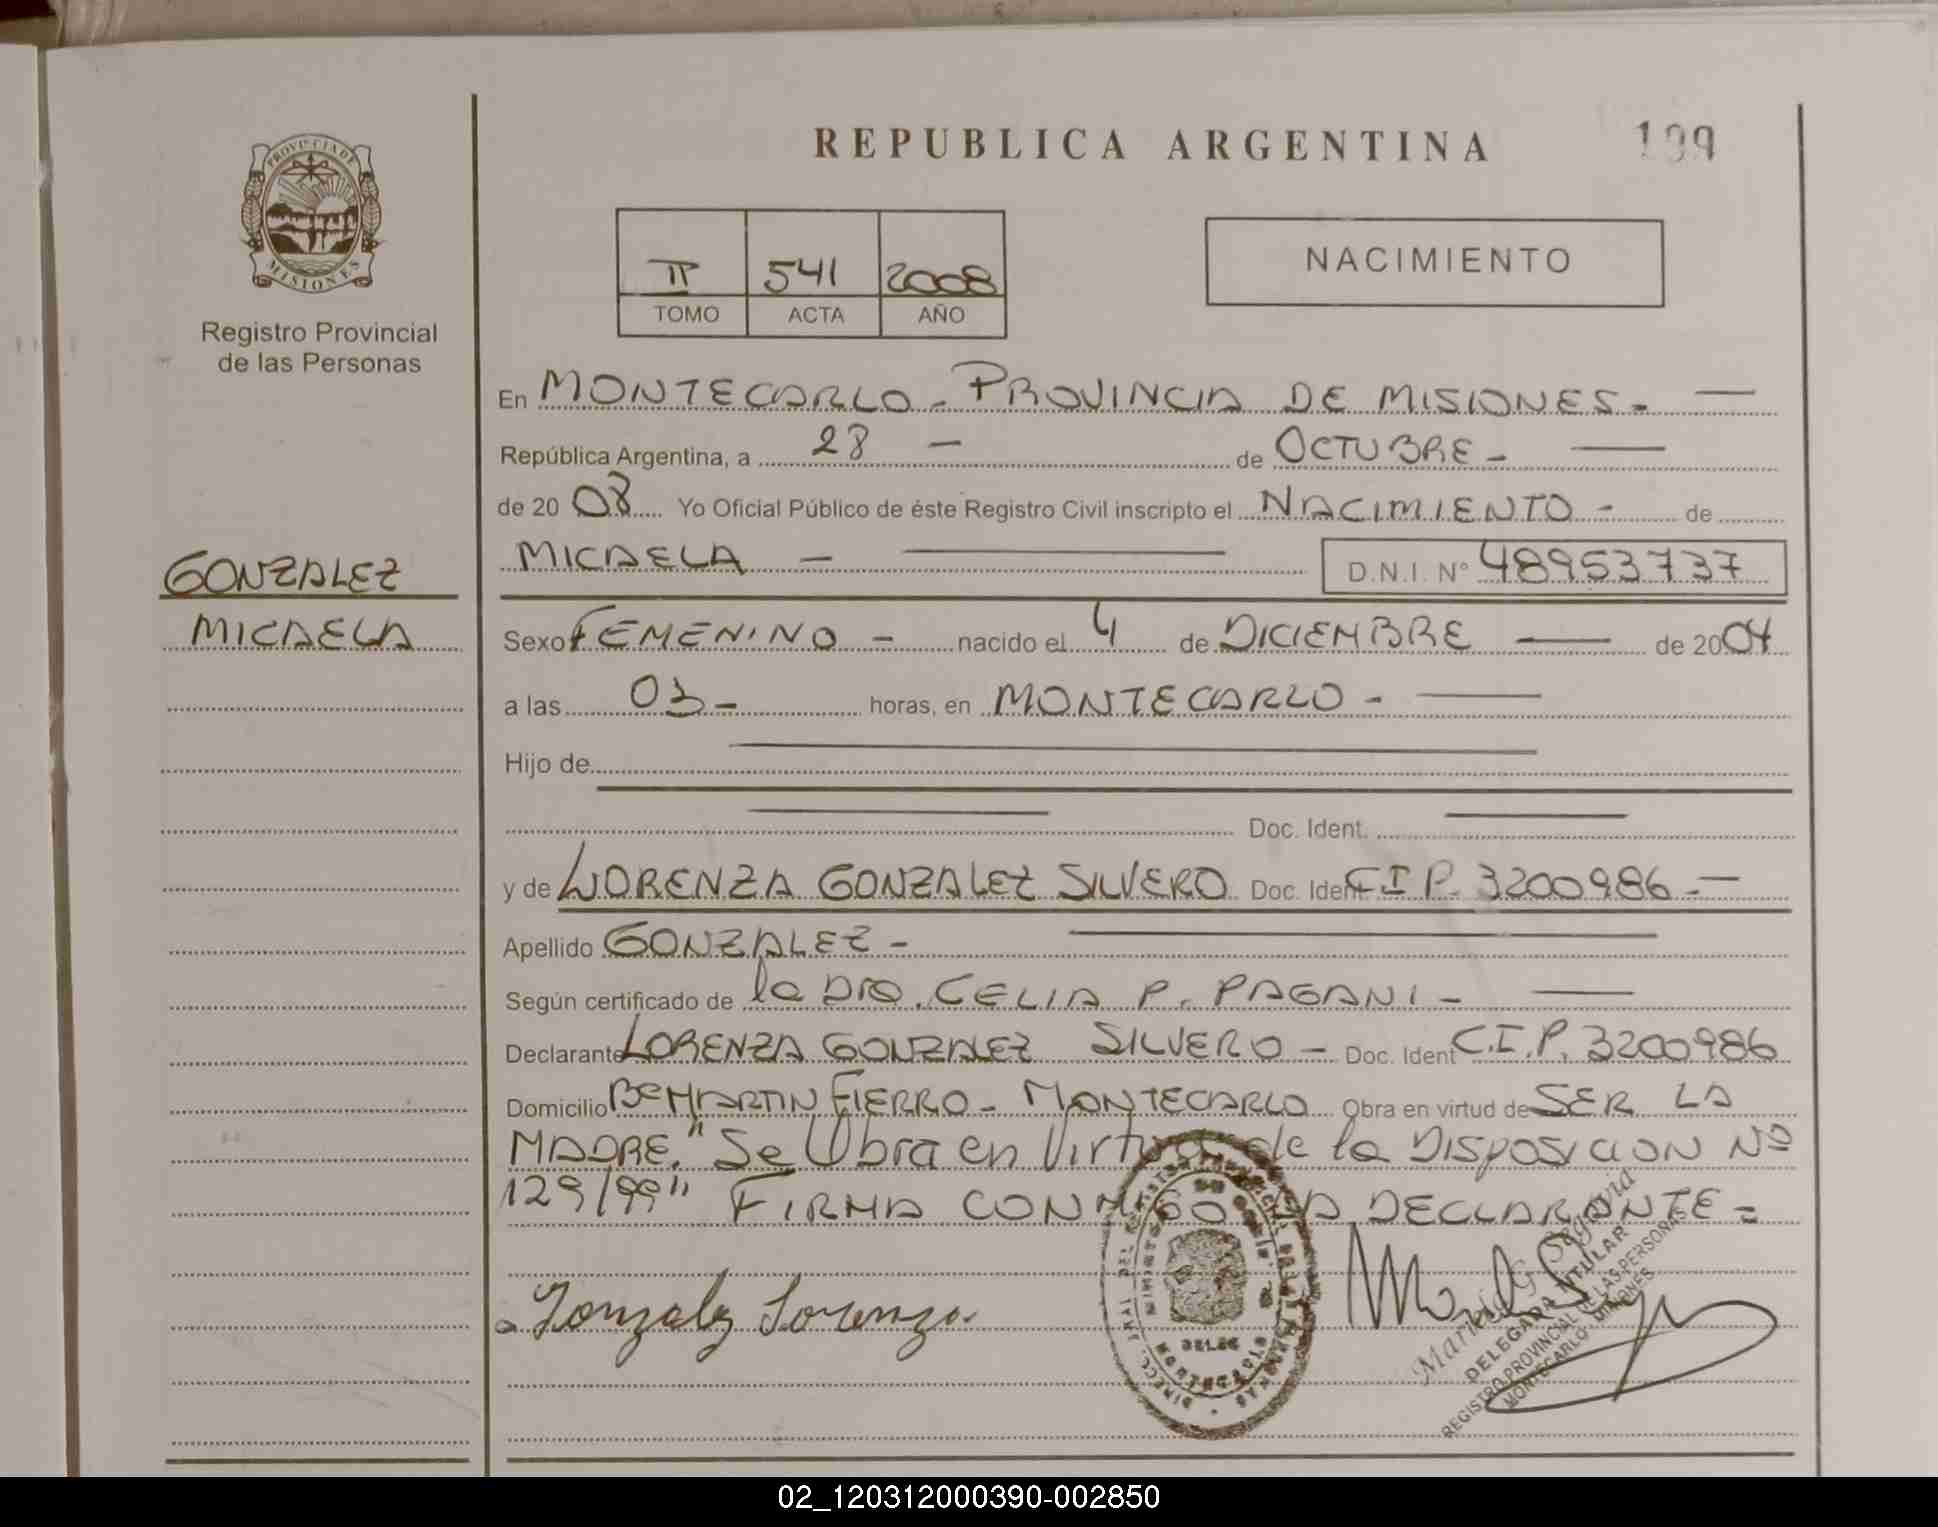 REPUBLICA ARGENTINA
199
PROVINCIA DE
MISIONES
Registro Provincial
de las Personas
II 541 2008
TOMO ACTA AÑO
NACIMIENTO
En MONTECARLO - PROVINCIA DE MISIONES -
República Argentina, a 28 - de OCTUBRE -
de 2008 Yo Oficial Público de éste Registro Civil inscripto el NACIMIENTO - de
GONZALEZ
MICAELA - D.N.I. N° 48953737
MICAELA
Sexo FEMENINO - nacido el 4 de DICIEMBRE de 2004
a las 03 - horas, en MONTECARLO -
Hijo de
Doc. Ident.
y de LORENZA GONZALEZ SILVERO Doc. Ident C.I.P. 3200986 -
Apellido GONZALEZ -
Según certificado de la Dra. CELIA P. PAGANI -
Declarante LORENZA GONZALEZ SILVERO - Doc. Ident C.I.P. 3200986
Domicilio Bº MARTIN FIERRO - MONTECARLO Obra en virtud de SER LA
MADRE. "Se Obra en Virtud de la DISPOSICION Nº
129/99" FIRMA CONMIGO LA DECLARANTE =
Gonzalez Lorenza
DELEGADA TITULAR
REGISTRO PROVINCIAL DE LAS PERSONAS
MONTECARLO - MISIONES
02_120312000390-002850